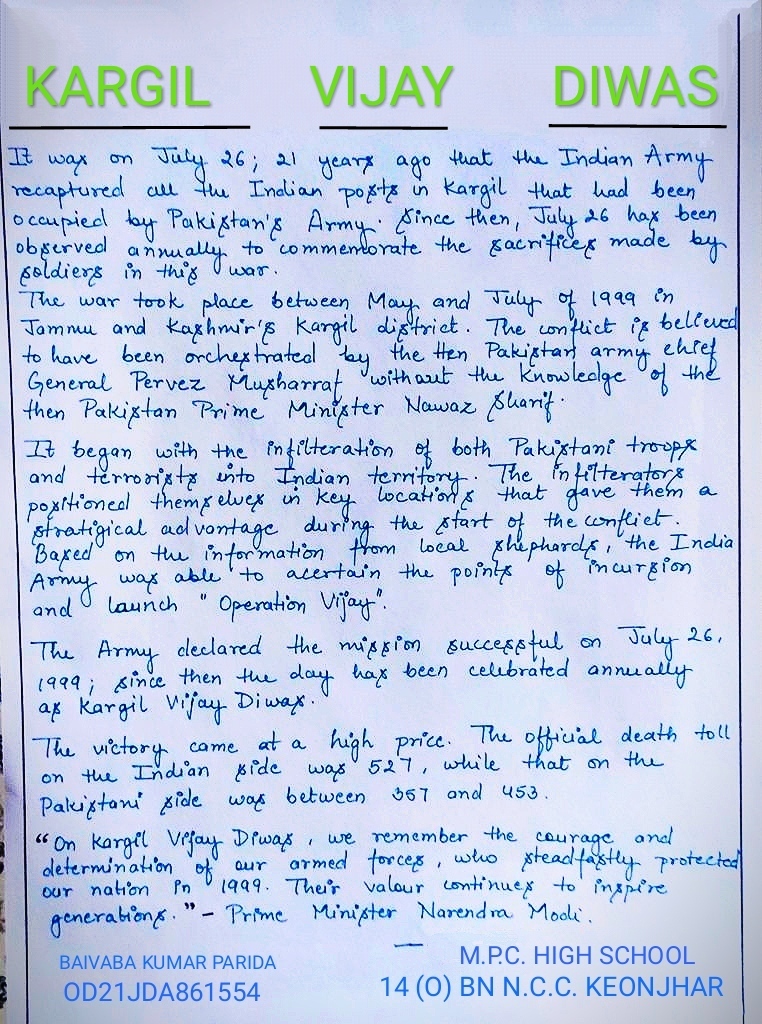 KARGIL VIJAY DIWAS
It was on July 26; 21 years ago that the Indian Army
recaptured all the Indian posts in Kargil that had been
occupied by Pakistan's Army. Since then, July 26 has been
observed annually to commemorate the sacrifices made by
soldiers in this war.
The war took place between May and July of 1999 in
Jammu and Kashmir's Kargil district. The conflict is believed
to have been orchestrated by the then Pakistan army chief
General Pervez Musharraf without the knowledge of the
then Pakistan Prime Minister Nawaz Sharif.
It began with the infilteration of both Pakistani troops
and terrorists into Indian territory. The infilterators
positioned themselves in key locations that gave them a
stratigical advantage during the start of the conflict.
Based on the information from local shephards, the India
Army was able to acertain the points of incursion
and launch "Operation Vijay".
The Army declared the mission successful on July 26,
1999; since then the day has been celebrated annually
as Kargil Vijay Diwas.
The victory came at a high price. The official death toll
on the Indian side was 527, while that on the
Pakistani side was between 357 and 453.
"On Kargil Vijay Diwas, we remember the courage and
determination of our armed forces, who steadfastly protected
our nation in 1999. Their valour continues to inspire
generations." - Prime Minister Narendra Modi.
BAIVABA KUMAR PARIDA
OD21JDA861554
M.P.C. HIGH SCHOOL
14 (O) BN N.C.C. KEONJHAR